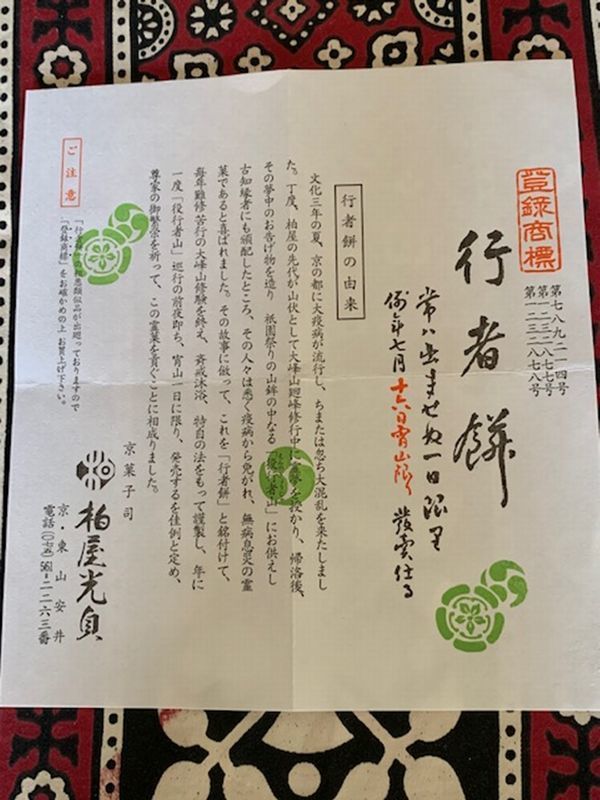 登録商標
第七八九二一四号
第一二三二八七七号
第一二三二八七八号
行者餅
常ハ出ませぬ一日限里
例年七月十六日宵山限り發賣仕る
行者餅の由来
文化三年の夏、京の都に大疫病が流行し、ちまたは忽ち大混乱を来たしまし
た。丁度、柏屋の先代が山伏として大峰山廻峰修行中に霊夢を授かり、帰洛後、
その夢中のお告げ物を造り 祇園祭りの山鉾の中なる「役行者山」にお供えし
古知縁者にも頒配したところ、その人々は悉く疫病から免がれ、無病息災の霊
菓であると喜ばれました。その故事に倣って、これを「行者餅」と銘付けて、
毎年難修苦行の大峰山修験を終え、斉戒沐浴、特自の法をもって謹製し、年に
一度「役行者山」巡行の前夜即ち、宵山一日に限り、発売するを佳例と定め、
尊家の御繁栄を祈って、この霊菓を賣ぐことに相成りました。
ご注意
「行者餅」の粗悪類似品が出廻っておりますので
「登録商標」をお確かめの上 お買上げ下さい。
京菓子司
柏屋光貞
京・東山安井
電話(〇七五)561-二二六三番